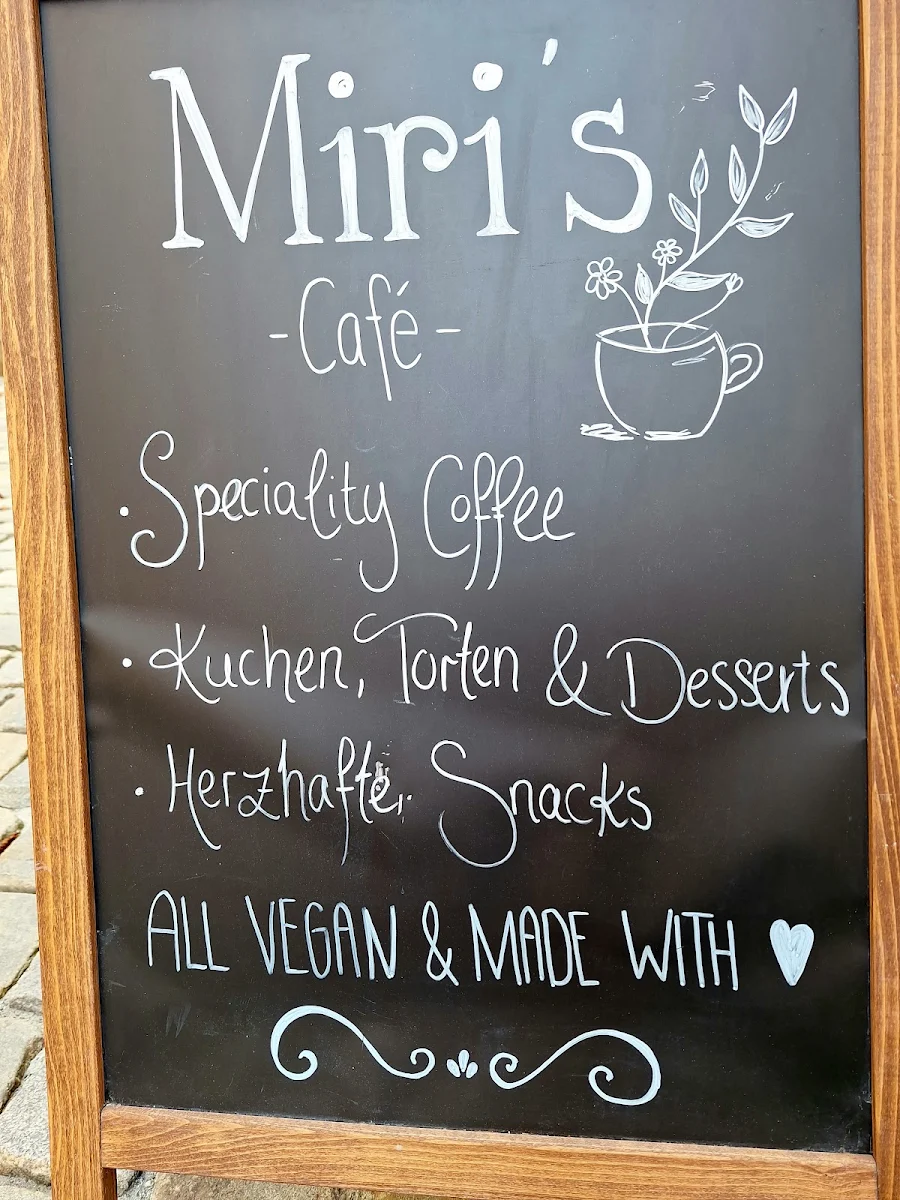 Miri's
-Café-
· Speciality Coffee
· Kuchen, Torten & Desserts
· Herzhafte Snacks
ALL VEGAN & MADE WITH ♥